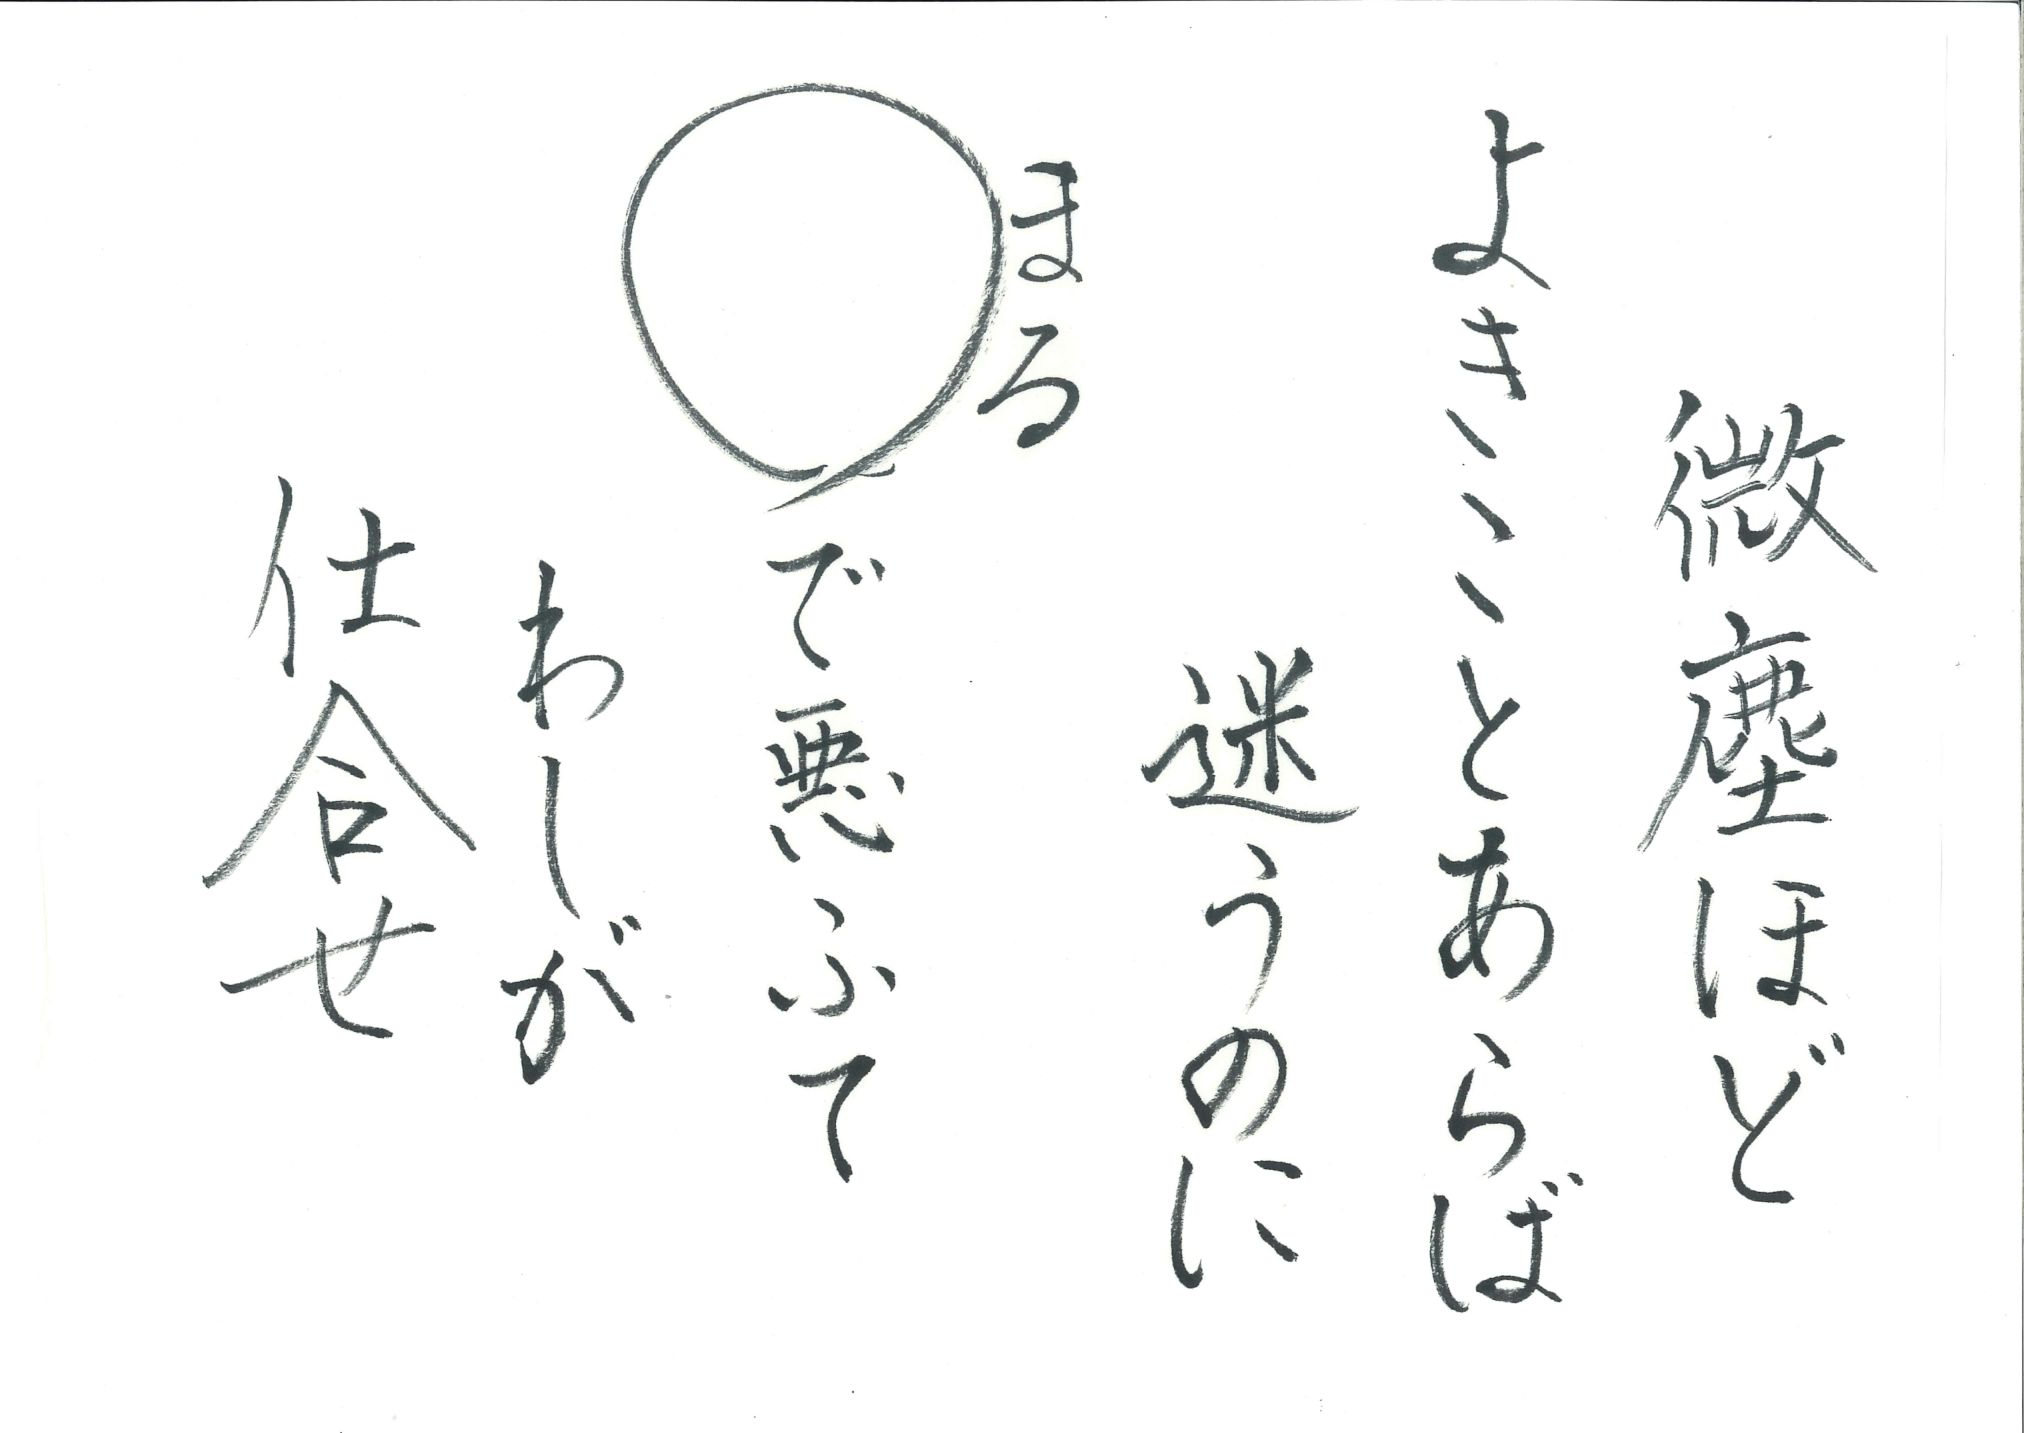 微塵ほど
よきことあらば
迷うのに
まる
〇で悪ふて
わしが
仕合せ